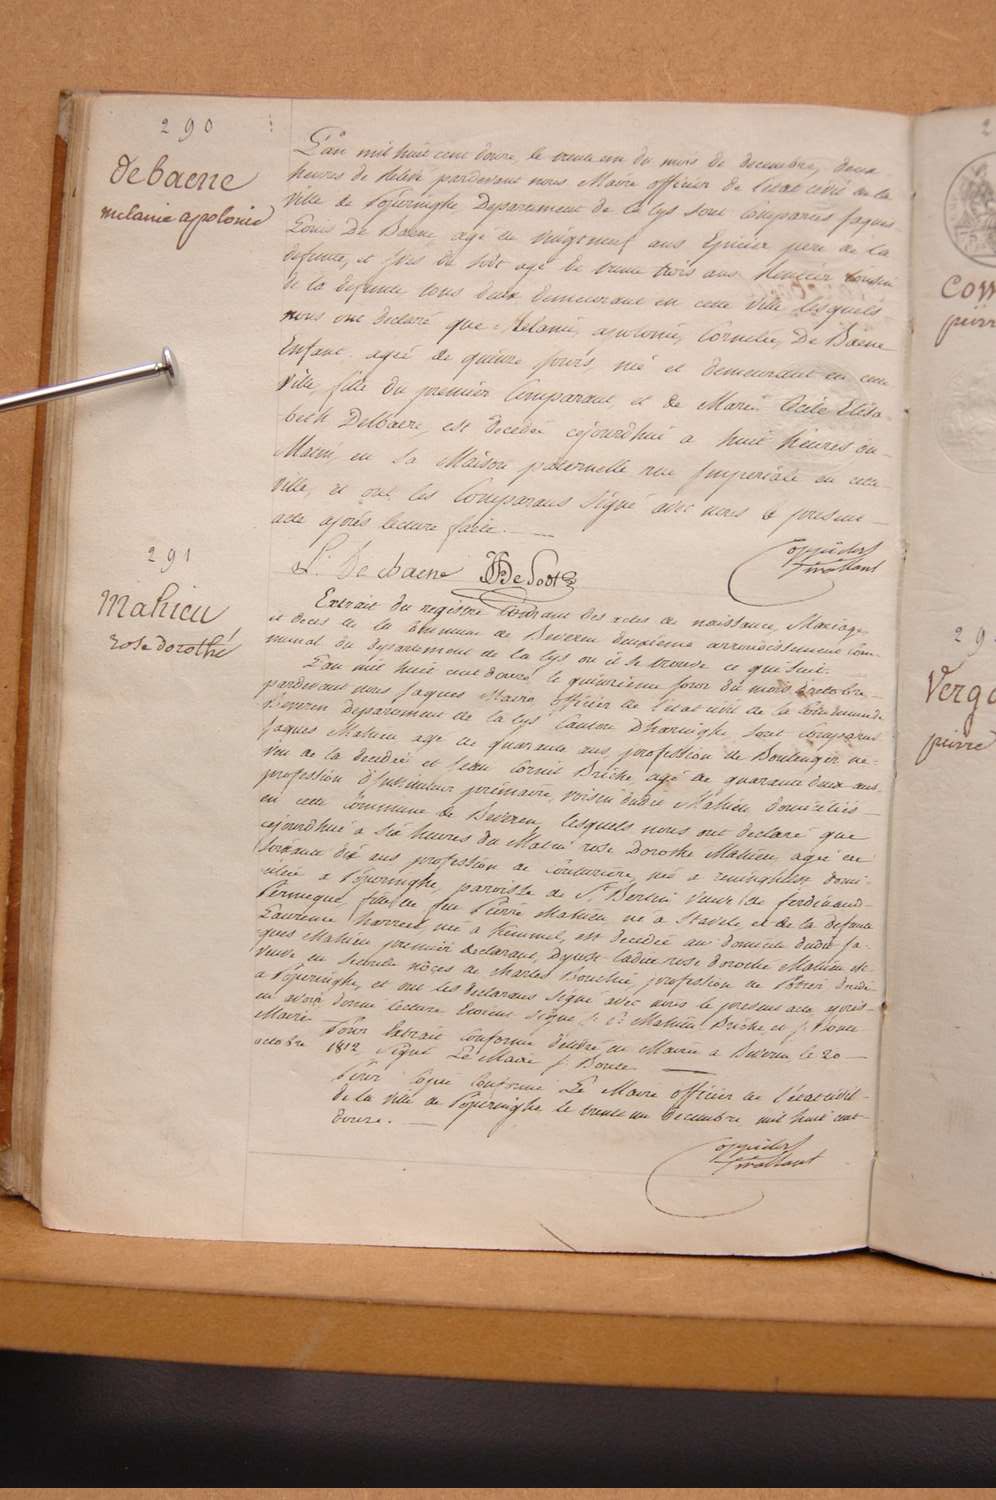 290
de baene
melanie apolonie
L'an mil huit cent douze, le trente un du mois de decembre, deux
heures de relevé pardevant nous Maire officier de l'état civil de la
ville de Poperinghe Departement de la lys sont Comparus Jaques
Louis De Baene agé de vingtneuf ans Epicier pere de la
defunte, et de Sodt agé de trente trois ans cousin
de la defunte tous deux demeurant en cette ville lesquels
nous ont declaré que Melanie, apolonie, Cornelie, De Baene
Enfant agée de quinze jours, née et demeurant en cette
ville, fille du premier Comparant, et de Marie Cecile Elisa-
beth Debaere, est decedée cejourdhui a huit heures du
Matin, en sa Maison paternelle rue Imperiale en cette
ville, et ont les Comparans signé avec nous le present
acte après lecture faite.
L. De baene De Sodt
291
Mahieu
rose dorothé
Extrait du registre Courant des actes de naissance, Mariage
et deces de la Commune de Beveren deuxieme arrondissement Com-
munal du departement de la lys ou il se trouve ce qui suit.
L'an mil huit cent douze, le quinzieme jour du mois d'octobre
pardevant nous Jaques Maire officier de l'état civil de la Commune de
Beveren departement de la lys Canton D'haringhe, sont Comparus
Jaques Mahieu agé de quarante ans, profession de Boulenger ne-
veu de la decedée et Jean Cornil Briche, agé de quarante deux ans
profession d'Instituteur primaire, voisin dudit Mahieu domiciliés
en cette Commune de Beveren, lesquels nous ont declaré que
cejourdhui a six heures du Matin rose Dorothe Mahieu, agée de
soixante dix ans profession de Couturière, née a reninghelst domi-
ciliée a Poperinghe, paroisse de St. Bertin veuve de ferdinand
fille de feu Pierre Mahieu né à Stavele et de la defunte
Laurence née à Kemmel, est decedée au domicile dudit Ja-
ques Mahieu premier declarant, ladite rose dorothé Mahieu etoit
veuve en seconde nôces de Charles Bouchié profession de Potier
a Poperinghe, et ont les declarans signé avec nous le present acte après
en avoir donné lecture Etoient signé J. Mahieu Briche, et J. Bonte
Maire
Pour Extrait Conforme delivré en Mairie a Beveren le 20
octobre 1812 signé Le Maire J. Bonte
Pour Copie Conforme Le Maire officier de l'état civil
de la ville de Poperinghe le trente un decembre mil huit cent
douze.
29
Verg
pierre